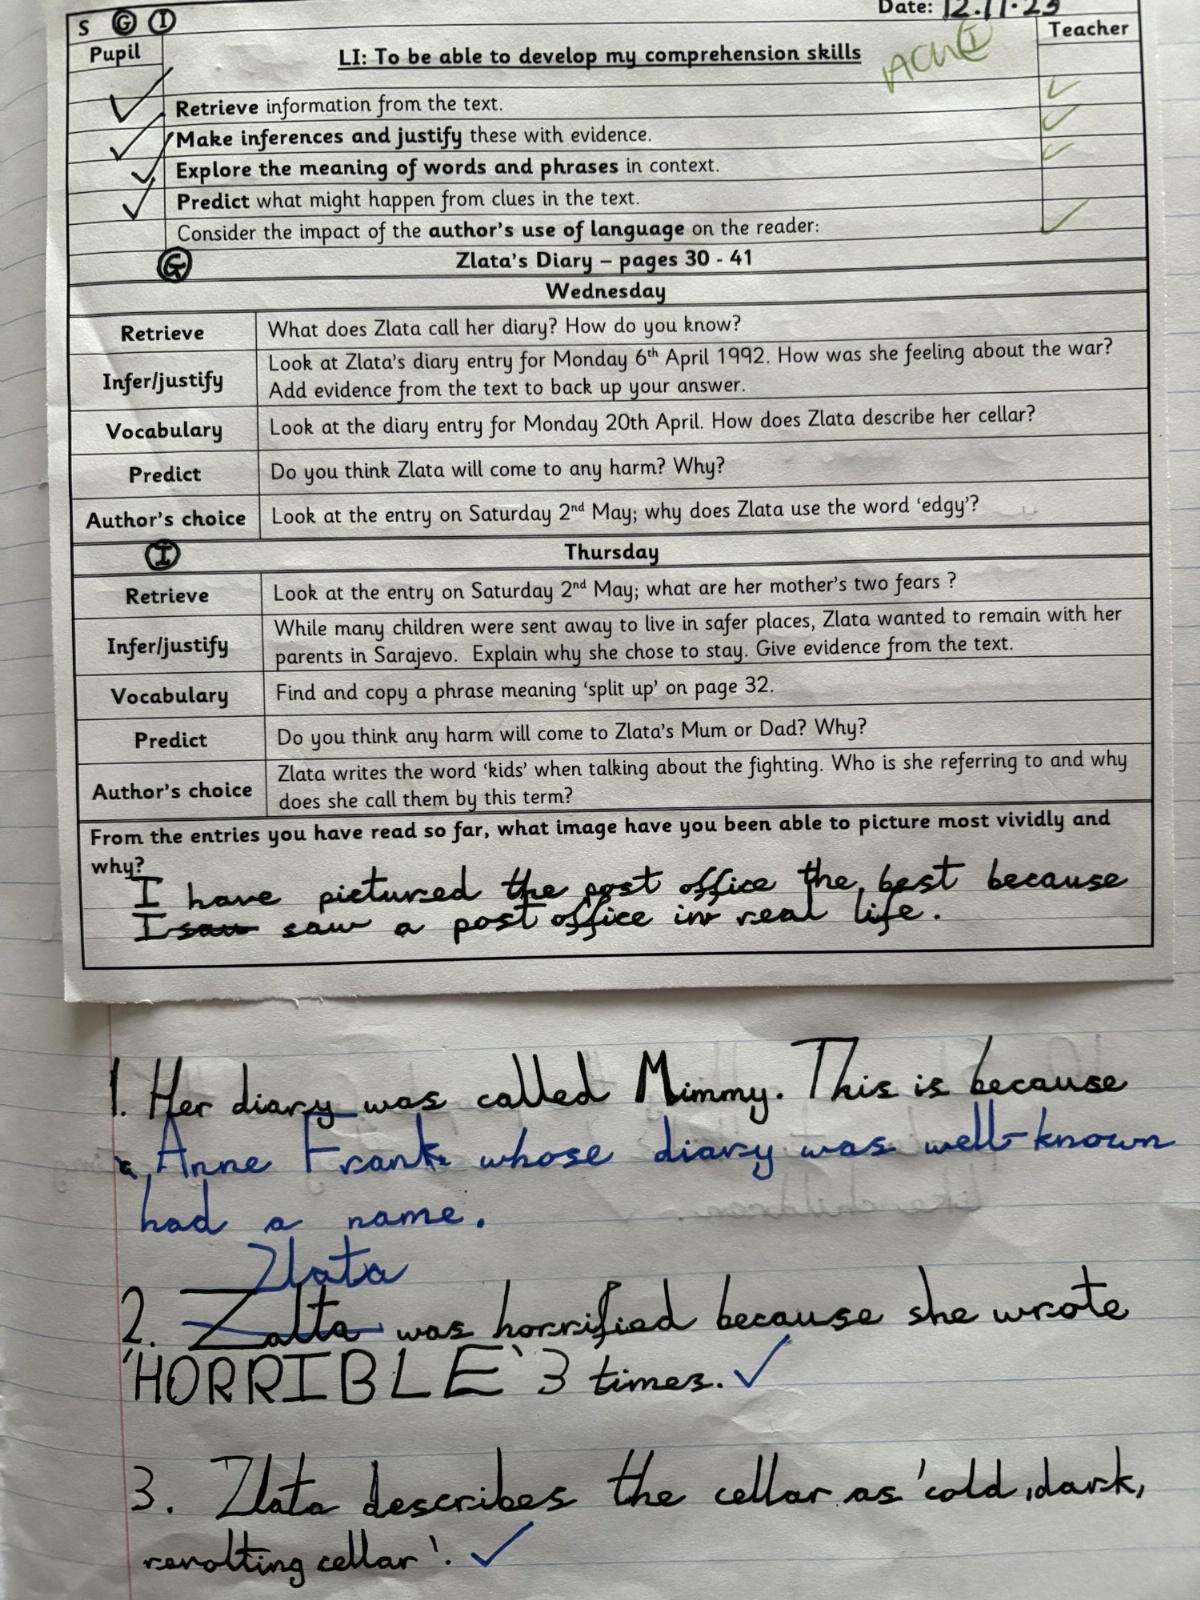 S G I
Date: 12.11.23
Pupil
LI: To be able to develop my comprehension skills
ACH I
Teacher
Retrieve information from the text.
Make inferences and justify these with evidence.
Explore the meaning of words and phrases in context.
Predict what might happen from clues in the text.
Consider the impact of the author's use of language on the reader:
G
Zlata's Diary – pages 30 - 41
Wednesday
Retrieve What does Zlata call her diary? How do you know?
Infer/justify Look at Zlata's diary entry for Monday 6th April 1992. How was she feeling about the war?
Add evidence from the text to back up your answer.
Vocabulary Look at the diary entry for Monday 20th April. How does Zlata describe her cellar?
Predict Do you think Zlata will come to any harm? Why?
Author's choice Look at the entry on Saturday 2nd May; why does Zlata use the word 'edgy'?
I
Thursday
Retrieve Look at the entry on Saturday 2nd May; what are her mother's two fears ?
Infer/justify While many children were sent away to live in safer places, Zlata wanted to remain with her
parents in Sarajevo. Explain why she chose to stay. Give evidence from the text.
Vocabulary Find and copy a phrase meaning 'split up' on page 32.
Predict Do you think any harm will come to Zlata's Mum or Dad? Why?
Author's choice Zlata writes the word 'kids' when talking about the fighting. Who is she referring to and why
does she call them by this term?
From the entries you have read so far, what image have you been able to picture most vividly and
why?
I have pictured the post office the best because
I saw saw a post office in real life.
1. Her diary was called Mimmy. This is because
Anne Frank whose diary was well-known
had a name.
Zlata
2. Zalta was horrified because she wrote
'HORRIBLE' 3 times.
3. Zlata describes the cellar as 'cold, dark,
revolting cellar'.